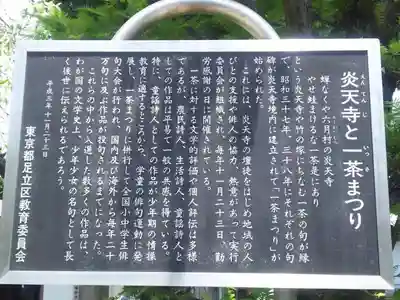 炎天寺と一茶まつり
えんてんじ
いっさ
蝉なくや六月村の炎天寺
やせ蛙まけるな一茶是にあり
という炎天寺や竹の塚にちなむ一茶の句が縁
で、昭和三十七年、三十八年にそれぞれの句
碑が炎天寺境内に建立されて「一茶まつり」が
始められた。
これには、炎天寺の檀徒をはじめ地域の人
びとの支援や俳人の協力、熱意があって実行
委員会が組織され、毎年十一月二十三日 勤
労感謝の日に開催されている。
一茶に対する文学的評価や個人評伝は多様
であるが、農民詩人、生活詩人、童謡詩人と
しての作品は平易で一般の共感を得ている。
特に、童謡詩人としての作品が少年期の情操
教育に適するところから、学童の俳句運動に発
展し、一茶まつりに併行して全国小中学生俳
句大会が行われ、国内及び海外から毎年二十
万句に及ぶ作品が投句されるまでになった。
これらの中から入選した数多くの作品は、
わが国の文学史上、少年少女の名句として長
く後世に伝えられるであろう。
平成三年十一月二十三日
東京都足立区教育委員会